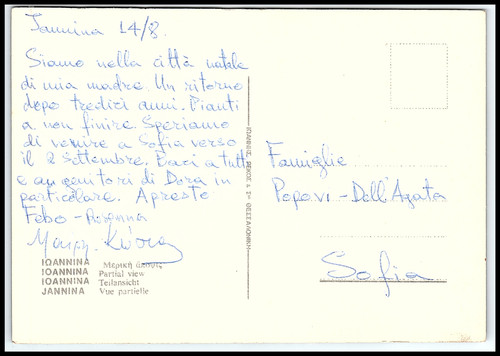 Jannina 14/8.
Siamo nella città natale
di mia madre. Un ritorno
dopo tredici anni. Pianti
a non finire. Speriamo
di venire a Sofia verso
il 2 settembre. Baci a tutti
e ai genitori di Dora in
particolare. A presto
Febo - Rosanna
IOANNINA Μερική άποψις
IOANNINA Partial view
IOANNINA Teilansicht
JANNINA Vue partielle
Famiglie
Popovi - Dell'Agata
Sofia